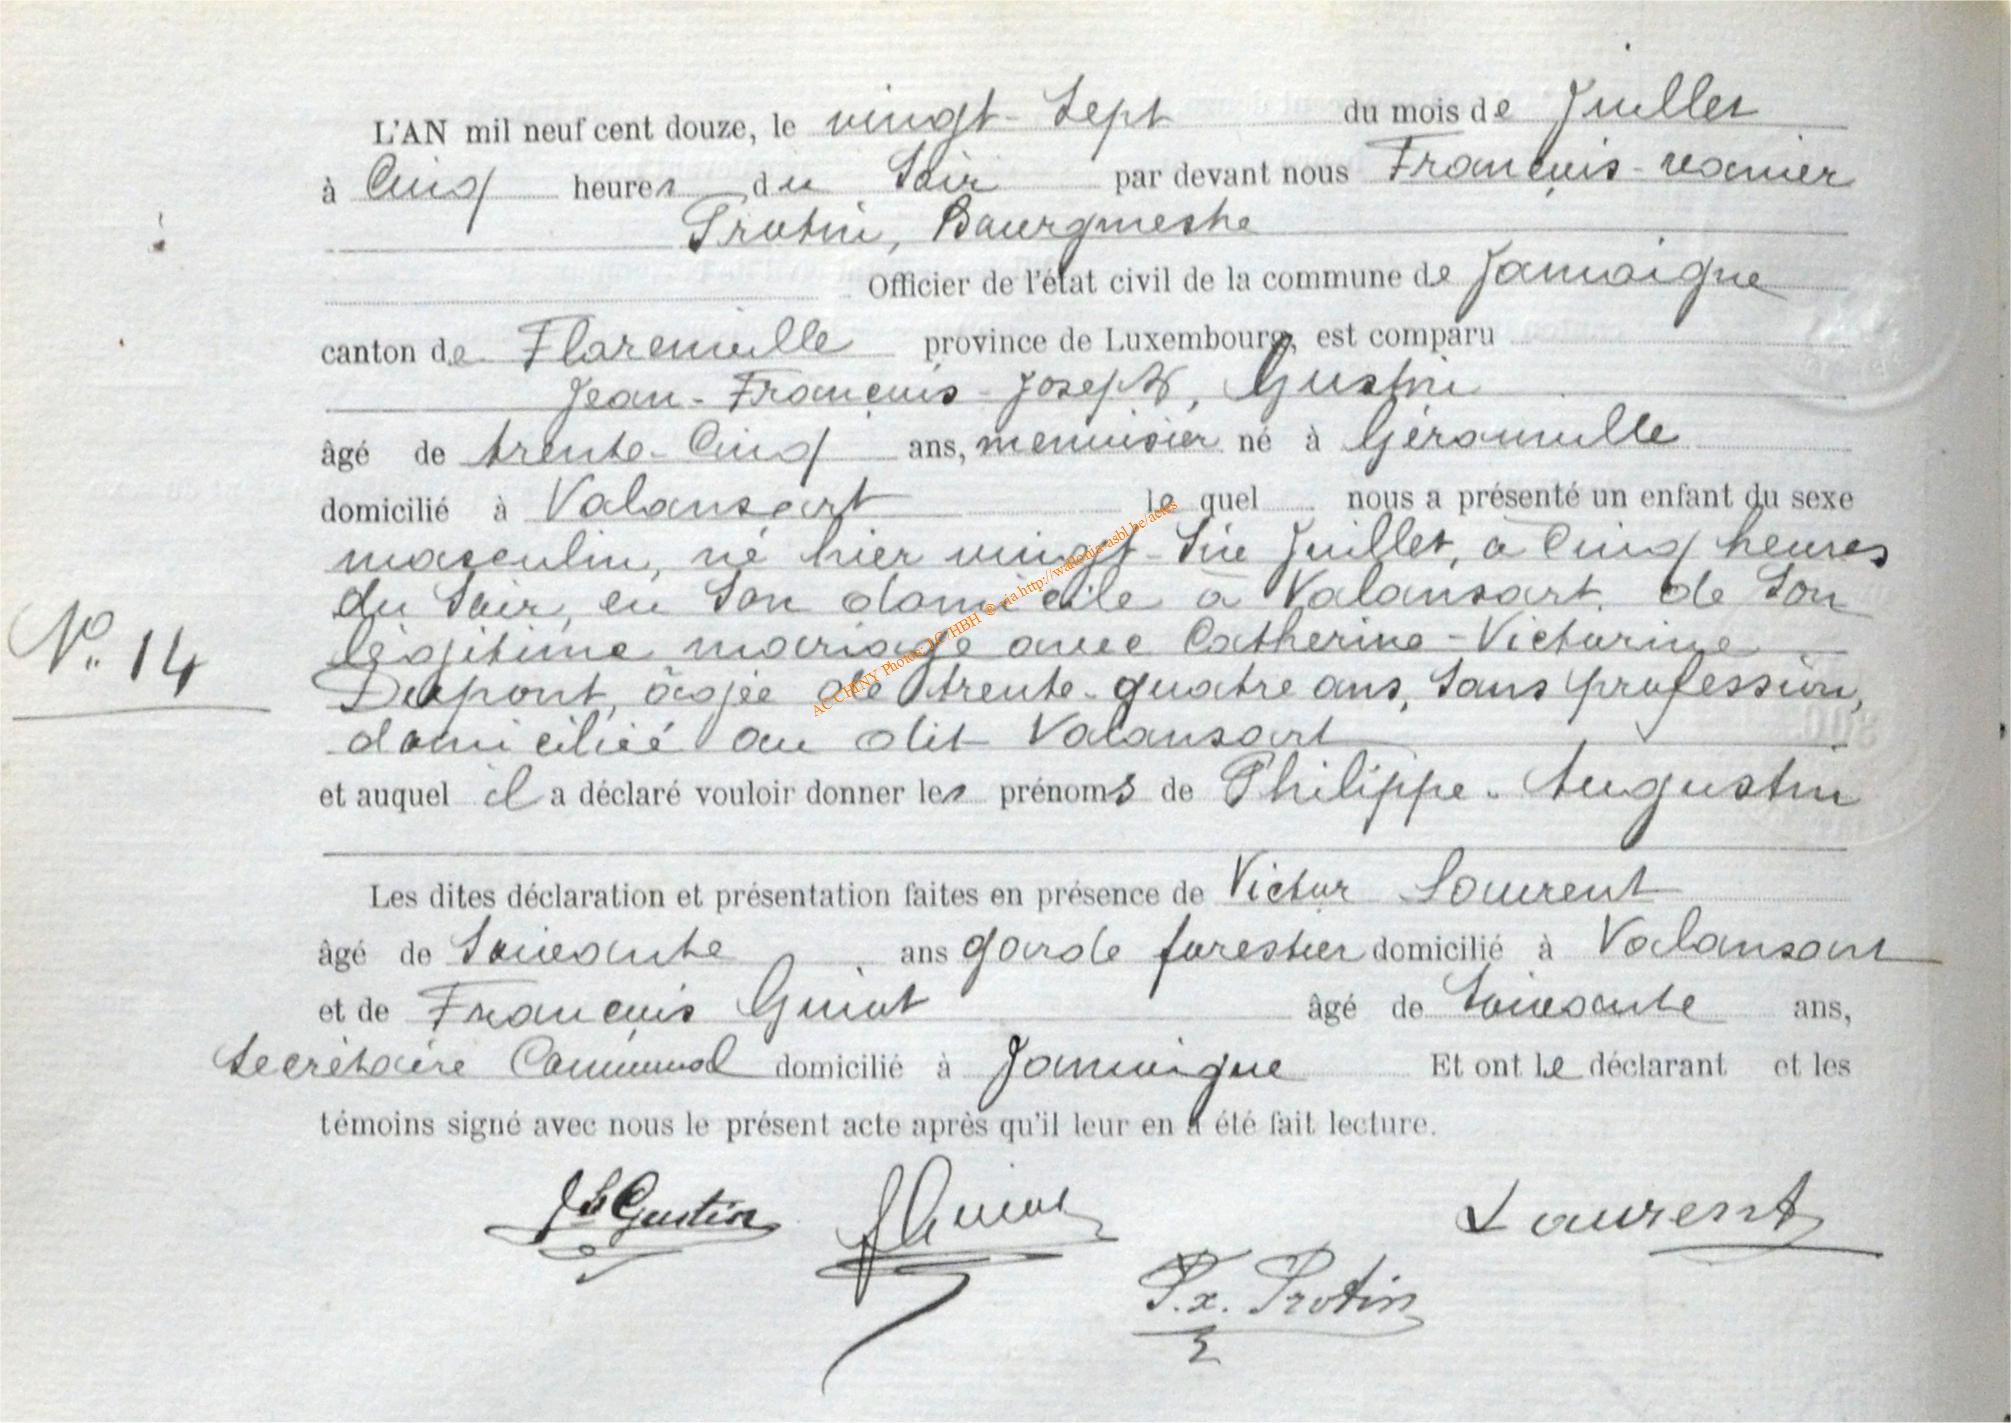 L'AN mil neuf cent douze, le vingt-sept du mois de Juillet
à Cinq heures du Soir par devant nous François-xavier
Protin, Bourgmestre
Officier de l'état civil de la commune de Jamoigne
canton de Florenville province de Luxembourg, est comparu
Jean-François-Joseph, Gustin
âgé de trente-Cinq ans, menuisier né à Gérouville
domicilié à Valansart lequel nous a présenté un enfant du sexe
masculin, né hier vingt-Six Juillet, à Cinq heures
du Soir, en Son domicile à Valansart, de Son
légitime mariage avec Catherine-Victorine
N° 14
Dupont, âgée de trente-quatre ans, Sans profession,
domiciliée au dit Valansart
et auquel il a déclaré vouloir donner les prénoms de Philippe-Augustin
Les dites déclaration et présentation faites en présence de Victor Laurent
âgé de Soixante ans garde forestier domicilié à Valansart
et de François Guiot âgé de Soixante ans,
Secrétaire Communal domicilié à Jamoigne Et ont le déclarant et les
témoins signé avec nous le présent acte après qu'il leur en a été fait lecture.
Js Gustin fGuiot Laurent
F.x. Protin
AC CHINY Photos: AC/HBH © via http://wallonia-asbl.be/actes